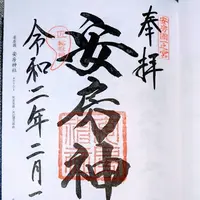 奉拝
安房神
令和二年二月一